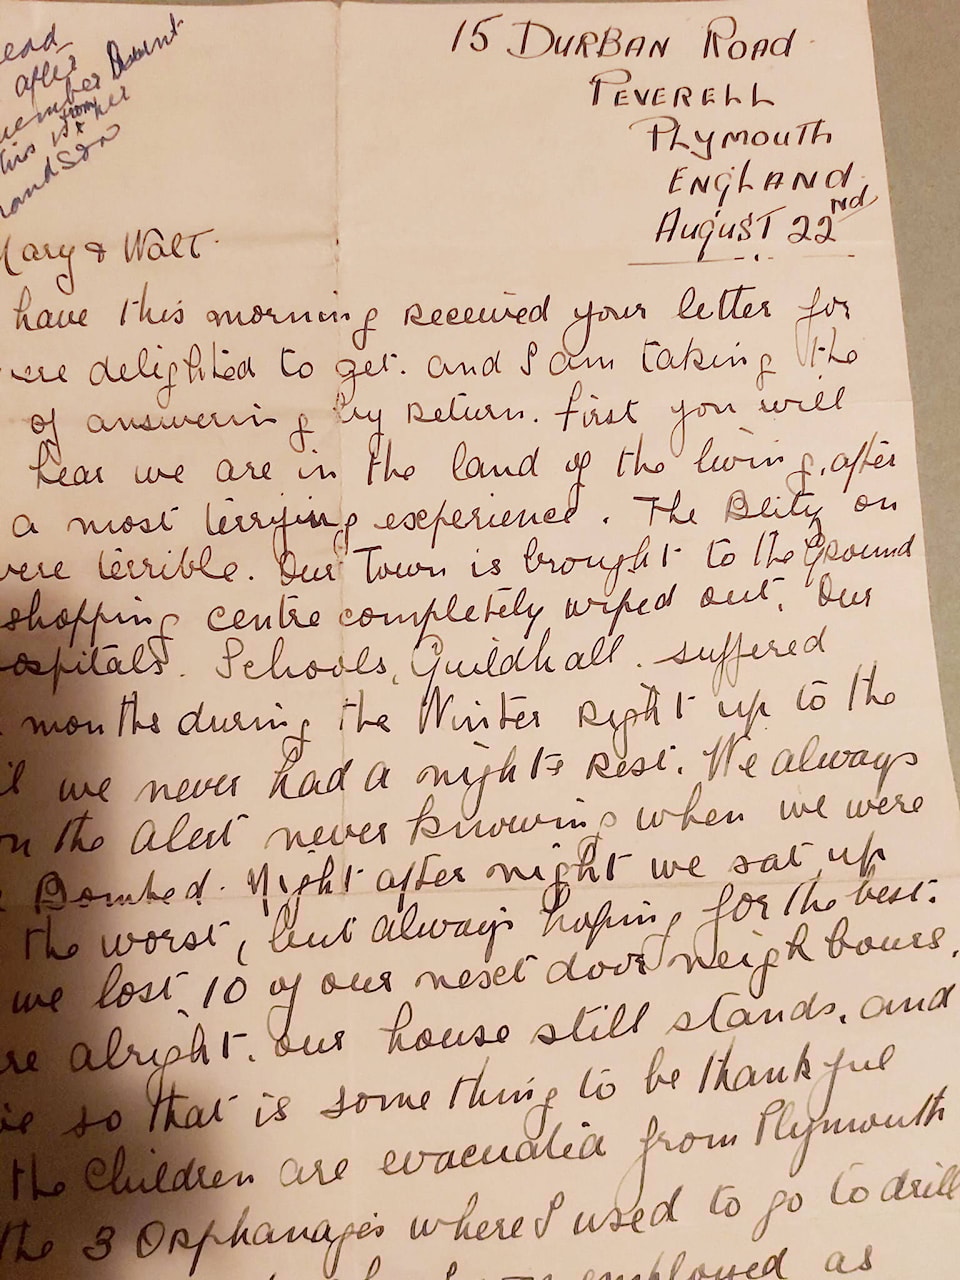 ead
after
member Descent
this is from her
andson
15 DURBAN ROAD
PEVERELL
PLYMOUTH
ENGLAND
AUGUST 22nd
Mary & Walt
have this morning received your letter for
ere delighted to get. and I am taking the
of answering by return. first you will
hear we are in the land of the living, after
a most terrifying experience. The Blitz on
were terrible. Our Town is brought to the Ground
shopping centre completely wiped out. Our
ospitals. Schools, Guildhall. suffered
months during the Winter right up to the
il we never had a nights rest. We always
on the alert never knowing when we were
Bombed. Night after night we sat up
the worst, but always hoping for the best.
we lost 10 of our next door neighbours.
re alright. our house still stands. and
so that is something to be thankful
the Children are evacuated from Plymouth
the 3 Orphanages where I used to go to drill
employed as